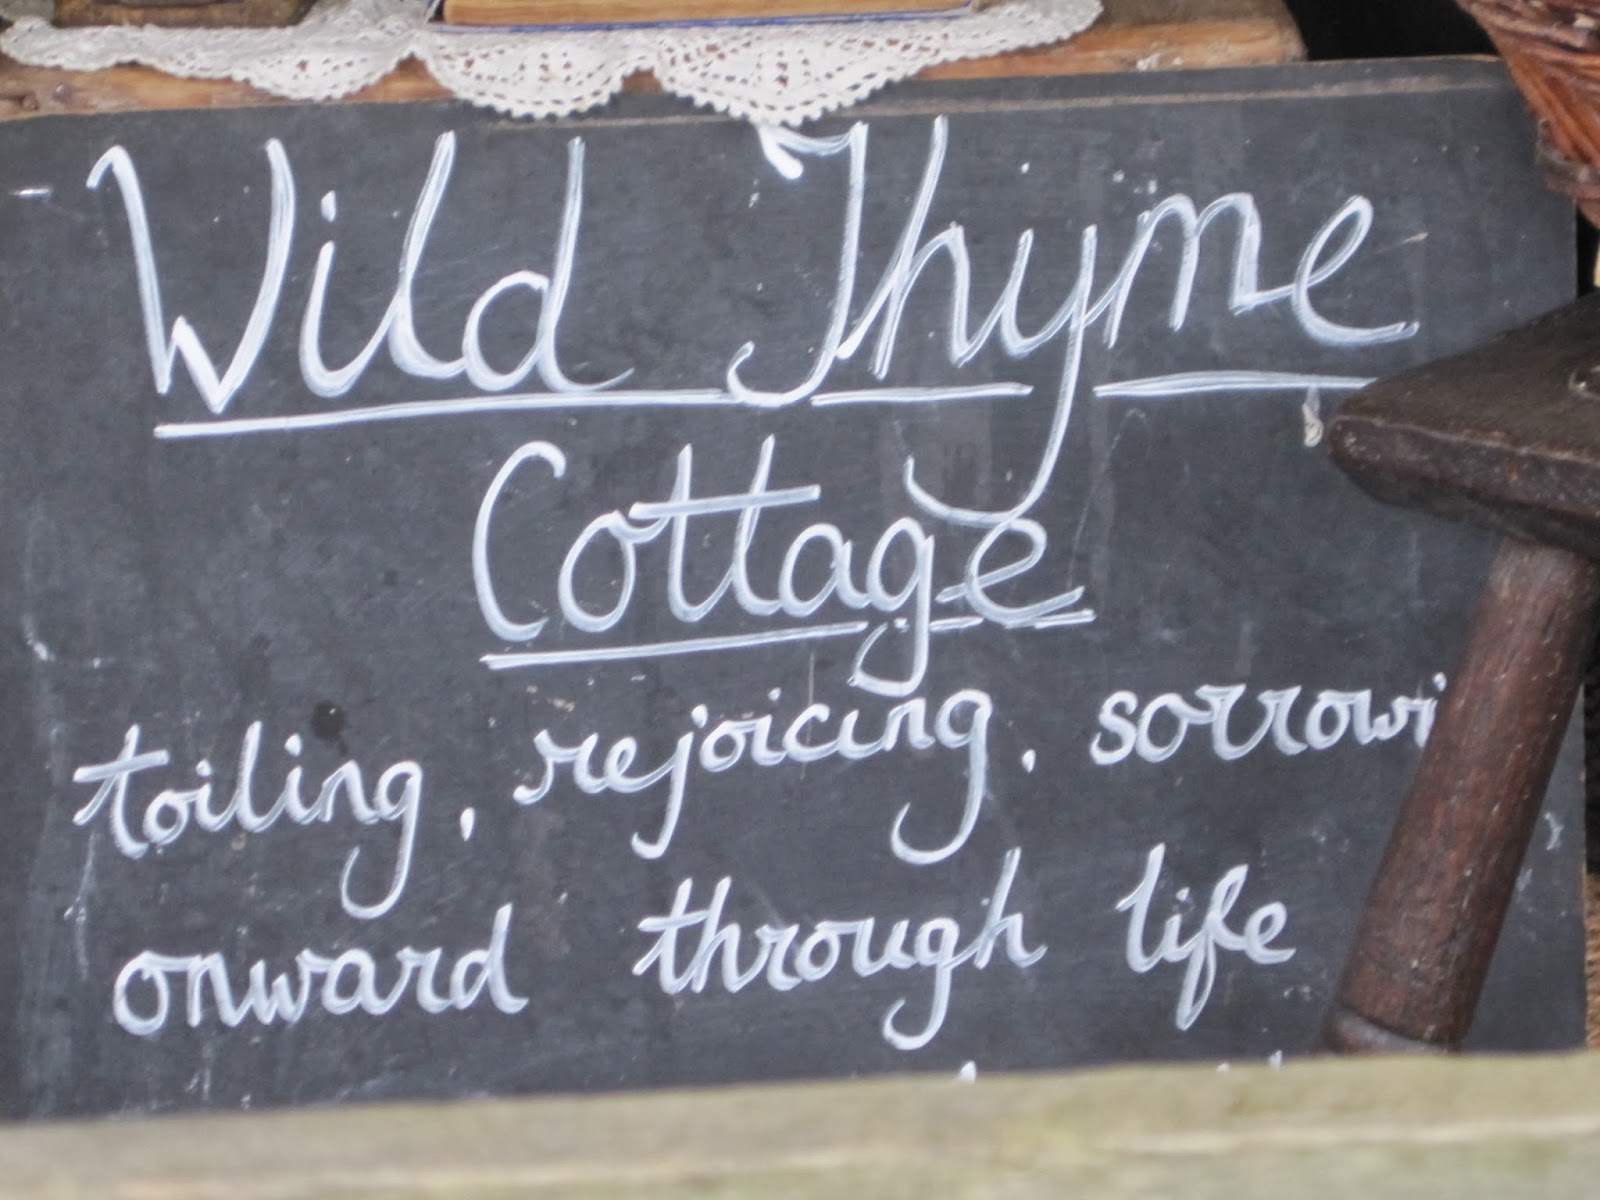 Wild Thyme
Cottage
toiling, rejoicing, sorrowi
onward through life